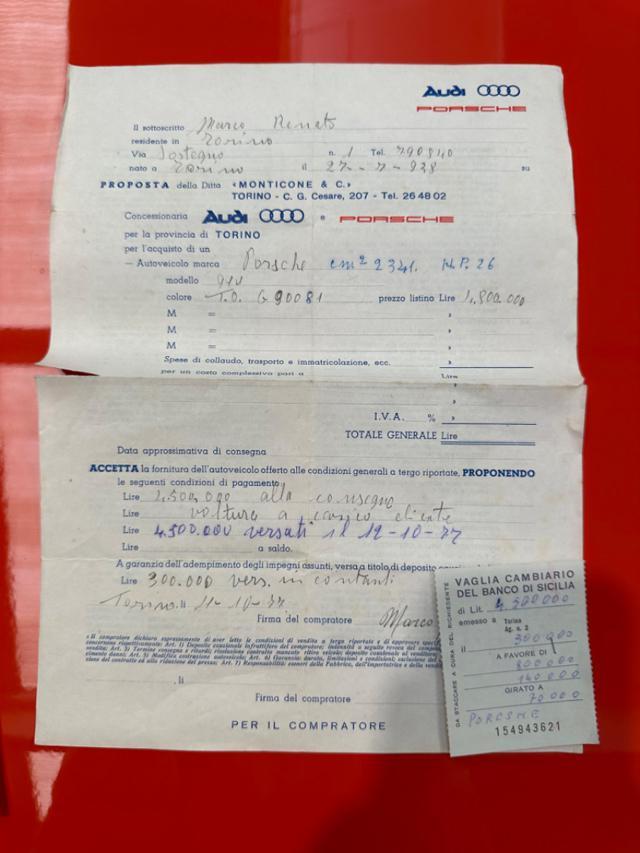 Audi
PORSCHE
Il sottoscritto Marco Renato
residente in Torino
Via Sostegno n. 1 Tel. 790840
nato a Torino il 27-7-938 su
PROPOSTA della Ditta «MONTICONE & C.»
TORINO - C. G. Cesare, 207 - Tel. 26 48 02
Concessionaria Audi e PORSCHE
per la provincia di TORINO
per l'acquisto di un
— Autoveicolo marca Porsche cm² 2341. H.P. 26
modello 911
colore T.O. G 90081 prezzo listino Lire 4.800.000
M = »
M = »
M = »
Spese di collaudo, trasporto e immatricolazione, ecc. »
per un costo complessivo pari a Lire
»
I.V.A. % »
TOTALE GENERALE Lire
Data approssimativa di consegna
ACCETTA la fornitura dell'autoveicolo offerto alle condizioni generali a tergo riportate, PROPONENDO
le seguenti condizioni di pagamento:
Lire 4.500.000 alla consegna
Lire voltura a carico cliente
Lire 4.500.000 versati il 12-10-77
Lire a saldo.
A garanzia dell'adempimento degli impegni assunti, versa a titolo di deposito
Lire 300.000 vers. in contanti
Torino. li 11-10-77
Firma del compratore Marco
. li
Firma del compratore
PER IL COMPRATORE
VAGLIA CAMBIARIO
DEL BANCO DI SICILIA
di Lit. 4.500000
emesso a Torino
Ag. n. 2
il 300000
A FAVORE DI
800000
140000
GIRATO A
70000
PORSCHE
154943621
DA STACCARE A CURA DEL RICHIEDENTE